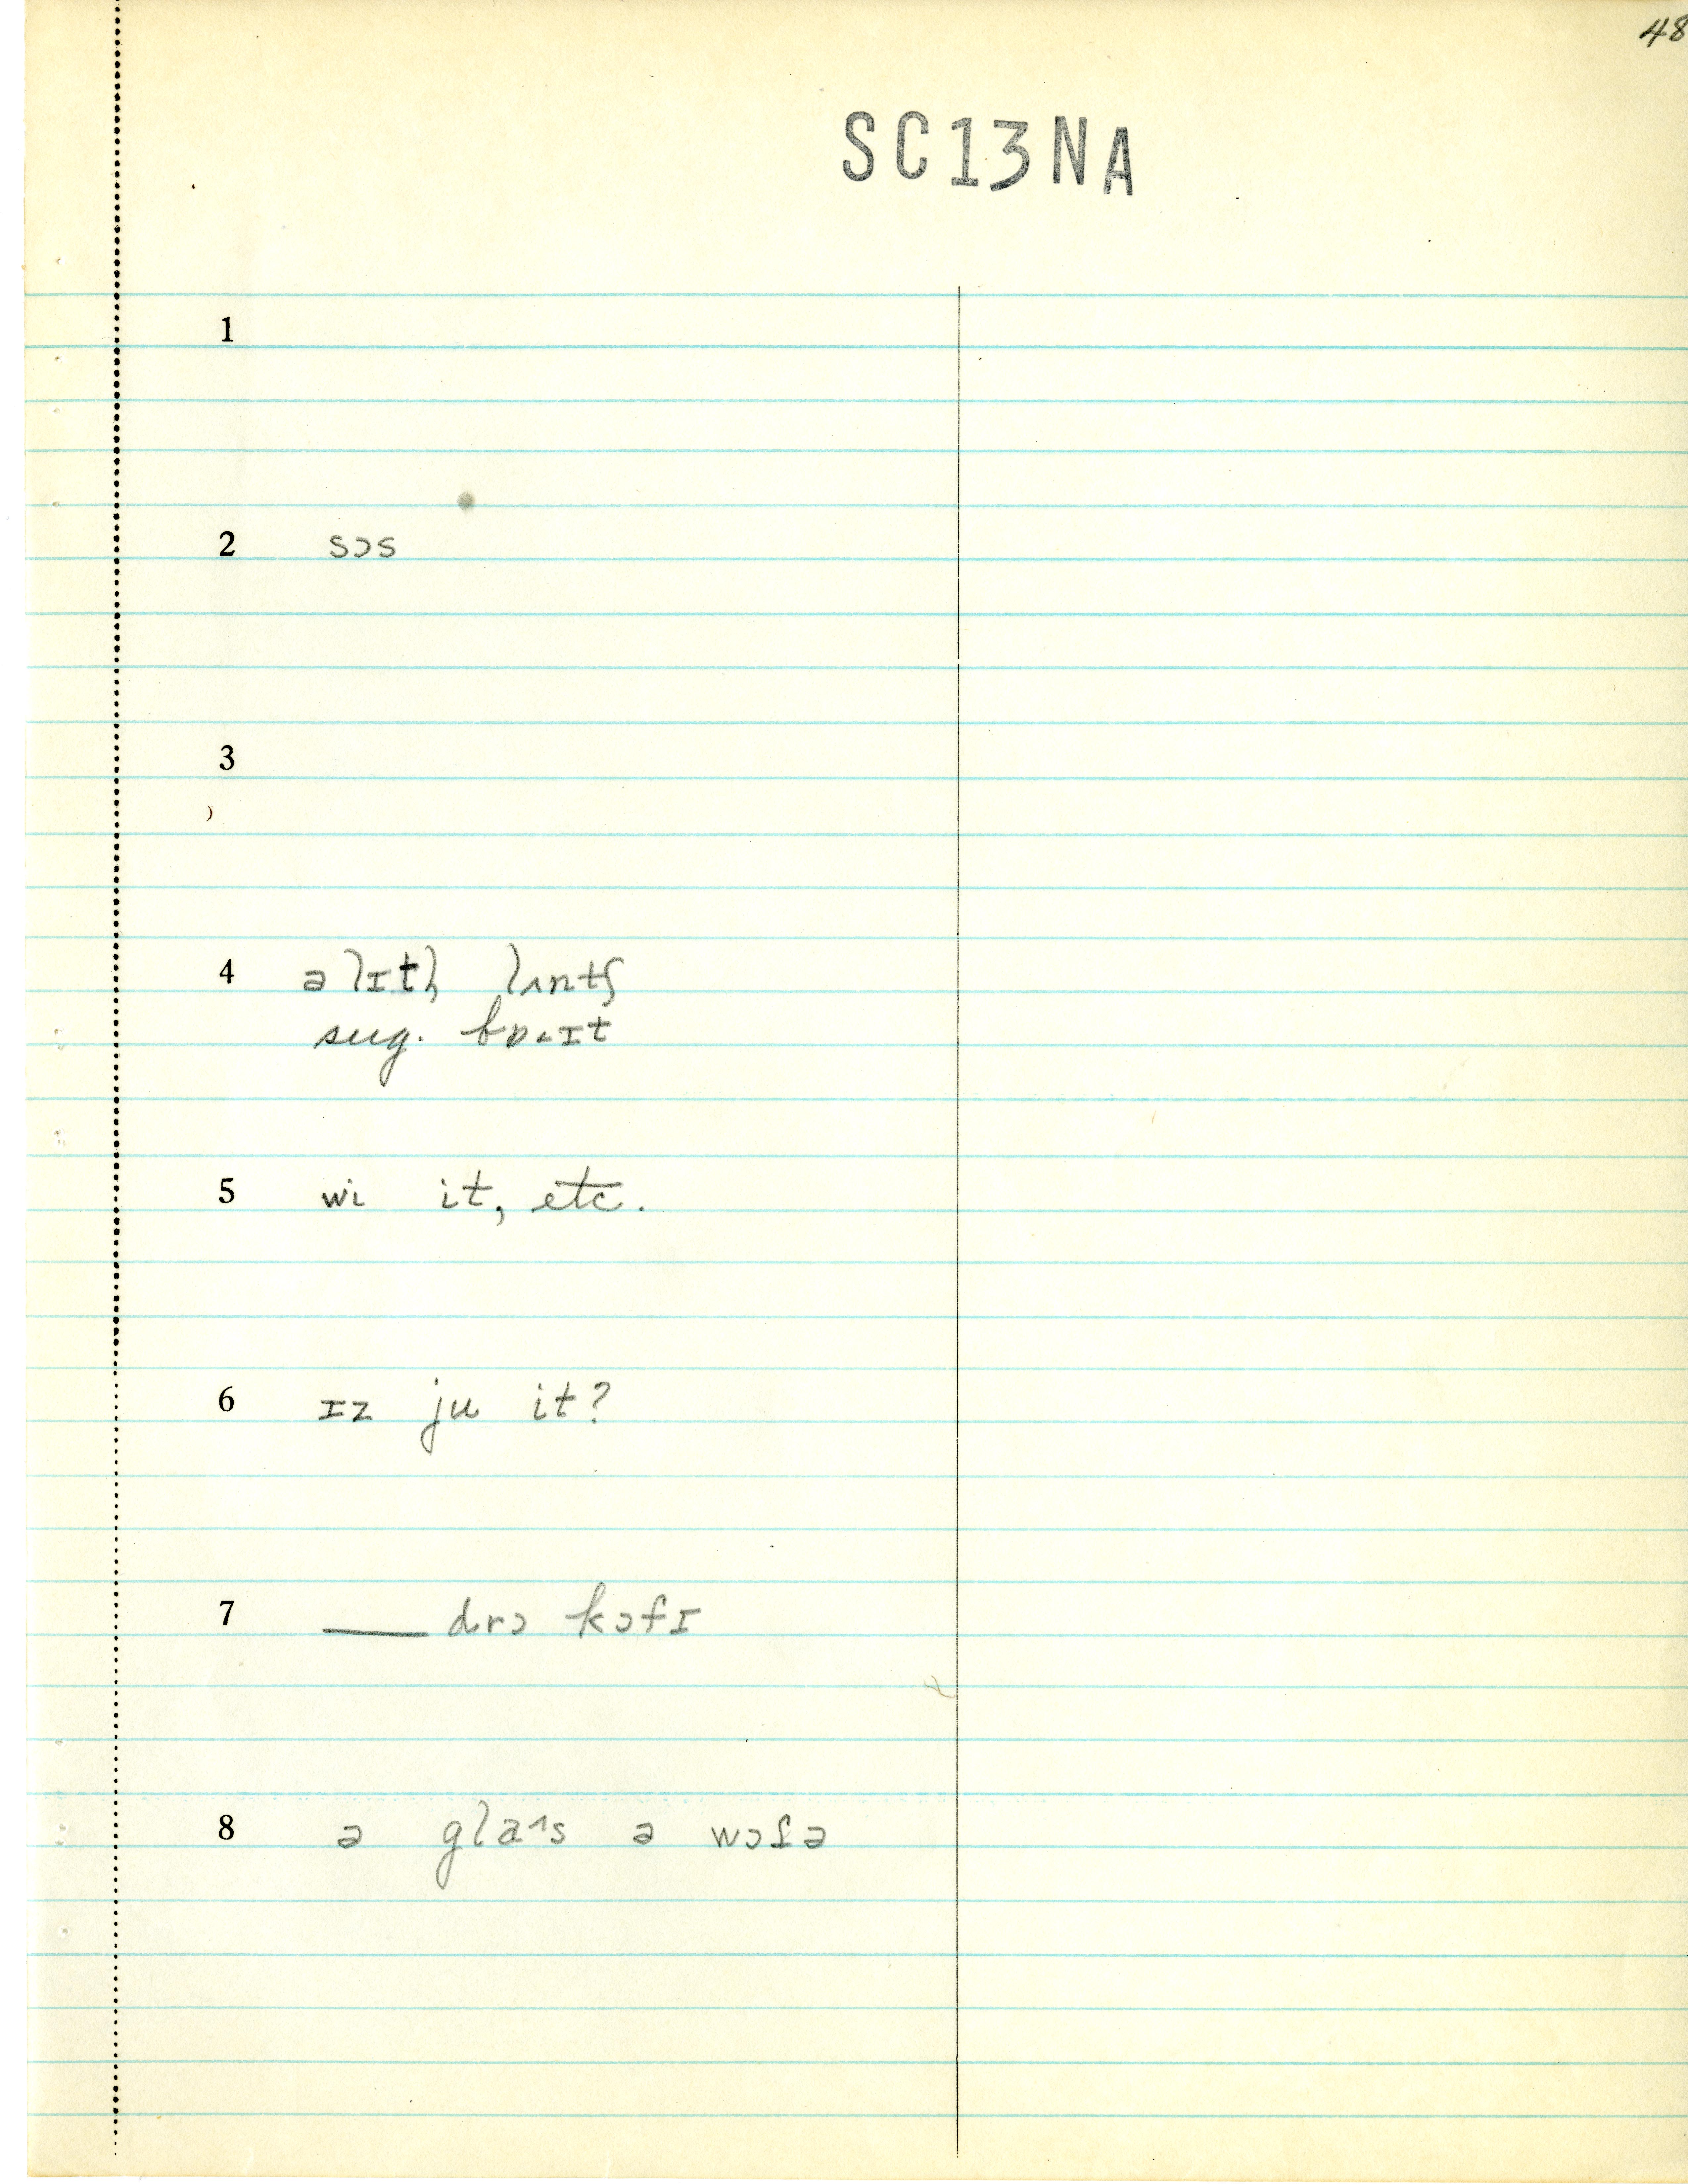 48
SC13NA
1
2 sɔs
3
4 ə lɪtl̩ lʌntʃ
sug. baɪt
5 wi it, etc.
6 ɪz ju it?
7 ___ drɔ kɔfɪ
8 ə gla˄s ə wɔtə